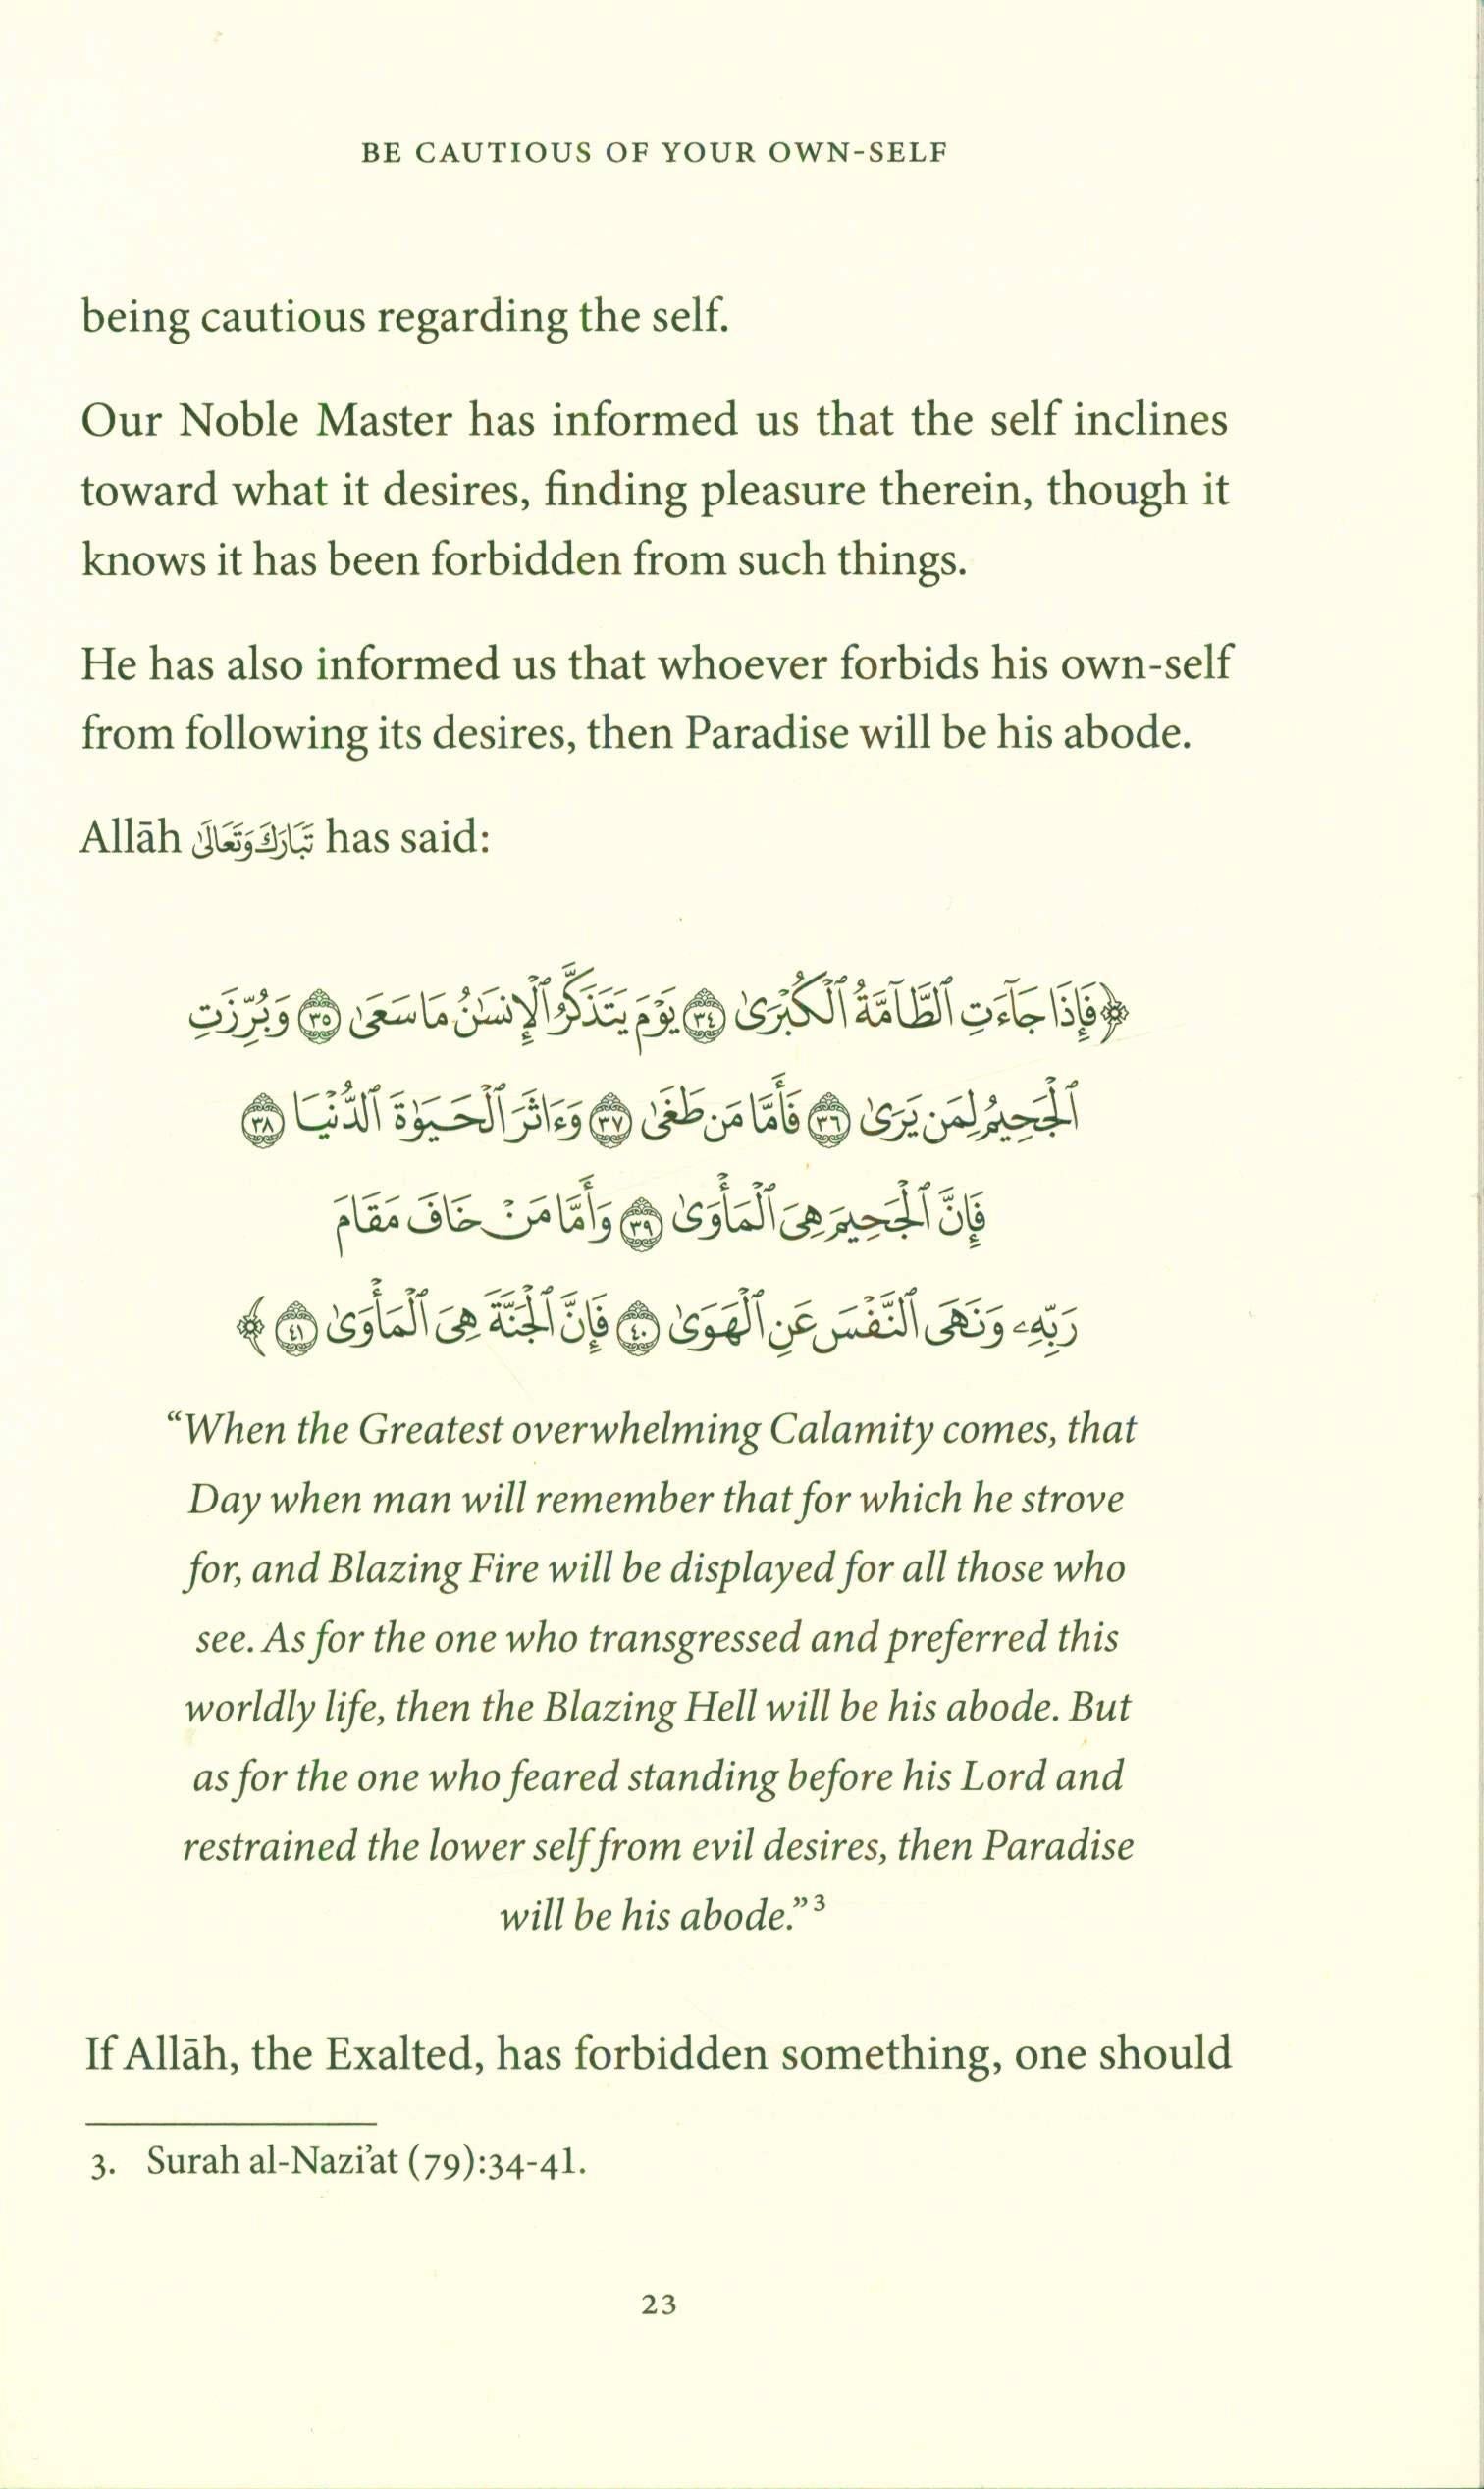 BE CAUTIOUS OF YOUR OWN-SELF
being cautious regarding the self.
Our Noble Master has informed us that the self inclines
toward what it desires, finding pleasure therein, though it
knows it has been forbidden from such things.
He has also informed us that whoever forbids his own-self
from following its desires, then Paradise will be his abode.
Allāh تَبَارَكَ وَتَعَالَىٰ has said:
﴿فَإِذَا جَآءَتِ ٱلطَّآمَّةُ ٱلْكُبْرَىٰ ٣٤ يَوْمَ يَتَذَكَّرُ ٱلْإِنسَٰنُ مَا سَعَىٰ ٣٥ وَبُرِّزَتِ
ٱلْجَحِيمُ لِمَن يَرَىٰ ٣٦ فَأَمَّا مَن طَغَىٰ ٣٧ وَءَاثَرَ ٱلْحَيَوٰةَ ٱلدُّنْيَا ٣٨
فَإِنَّ ٱلْجَحِيمَ هِىَ ٱلْمَأْوَىٰ ٣٩ وَأَمَّا مَنْ خَافَ مَقَامَ
رَبِّهِۦ وَنَهَى ٱلنَّفْسَ عَنِ ٱلْهَوَىٰ ٤٠ فَإِنَّ ٱلْجَنَّةَ هِىَ ٱلْمَأْوَىٰ ٤١ ﴾
“When the Greatest overwhelming Calamity comes, that
Day when man will remember that for which he strove
for, and Blazing Fire will be displayed for all those who
see. As for the one who transgressed and preferred this
worldly life, then the Blazing Hell will be his abode. But
as for the one who feared standing before his Lord and
restrained the lower self from evil desires, then Paradise
will be his abode.”³
If Allāh, the Exalted, has forbidden something, one should
3. Surah al-Nazi’at (79):34-41.
23